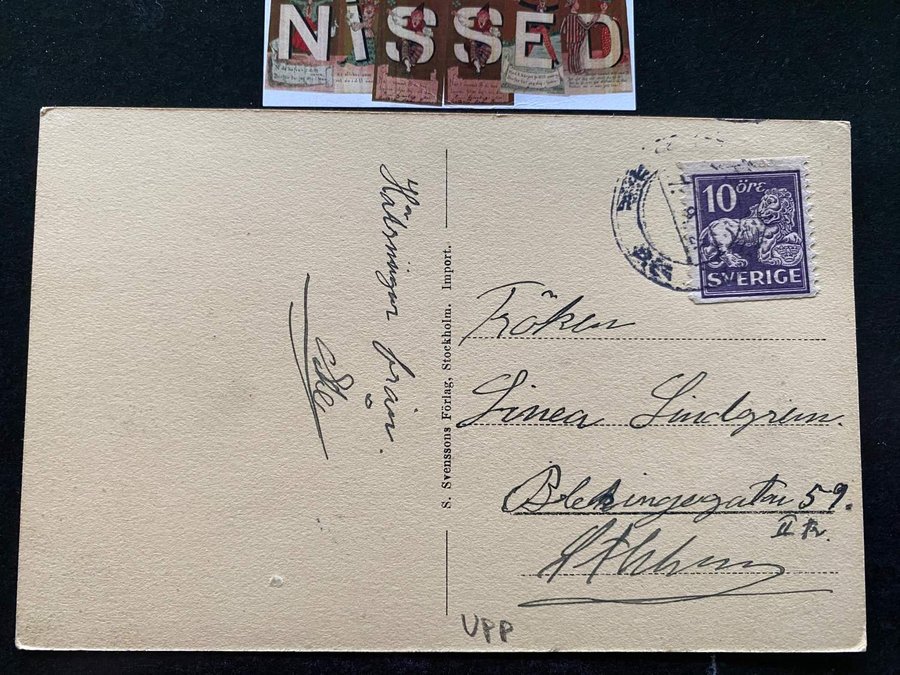 NISSED
10 öre
SVERIGE
Hälsningar från.
S. Svenssons Förlag, Stockholm. Import.
Fröken
Linea Lindgren.
Blekingegatan 59.
II tr.
Sthlm
UPP